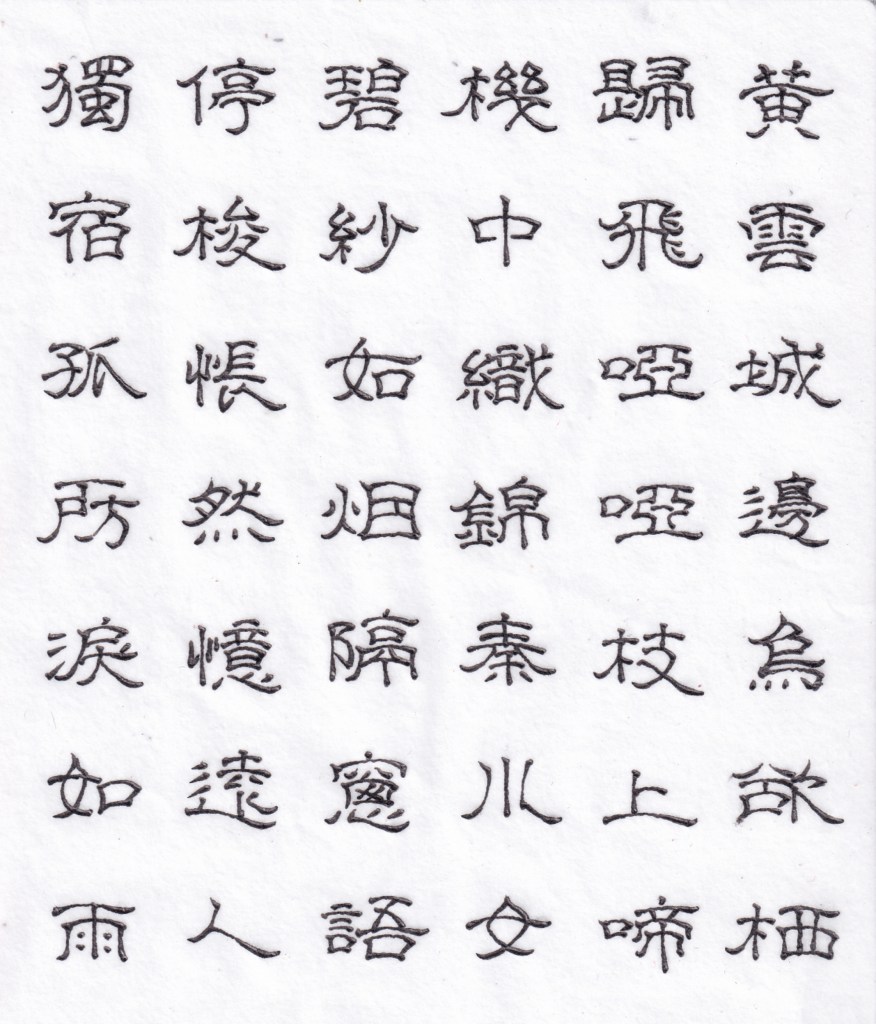 黄雲城邊烏欲栖
歸飛啞啞枝上啼
機中織錦秦川女
碧紗如烟隔窻語
停梭悵然憶遠人
獨宿孤房淚如雨